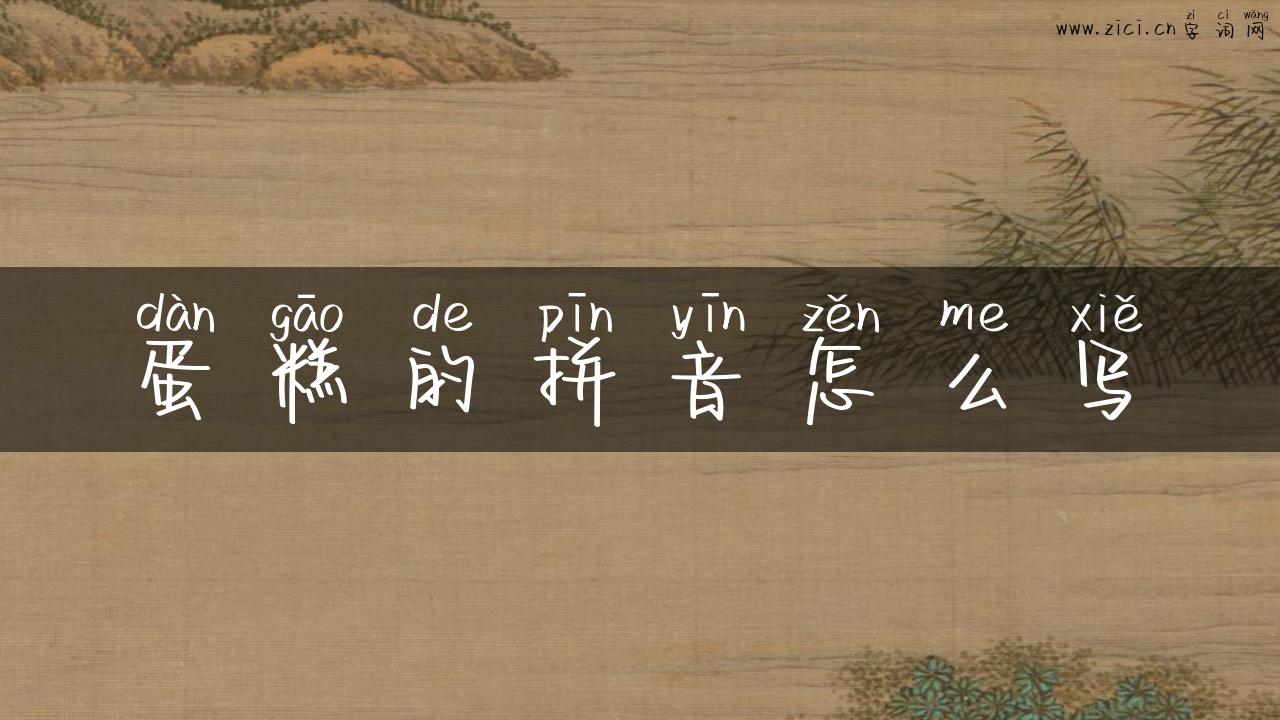 zì cí wǎng
www.zici.cn 字词网
dàn gāo de pīn yīn zěn me xiě
蛋糕的拼音怎么写